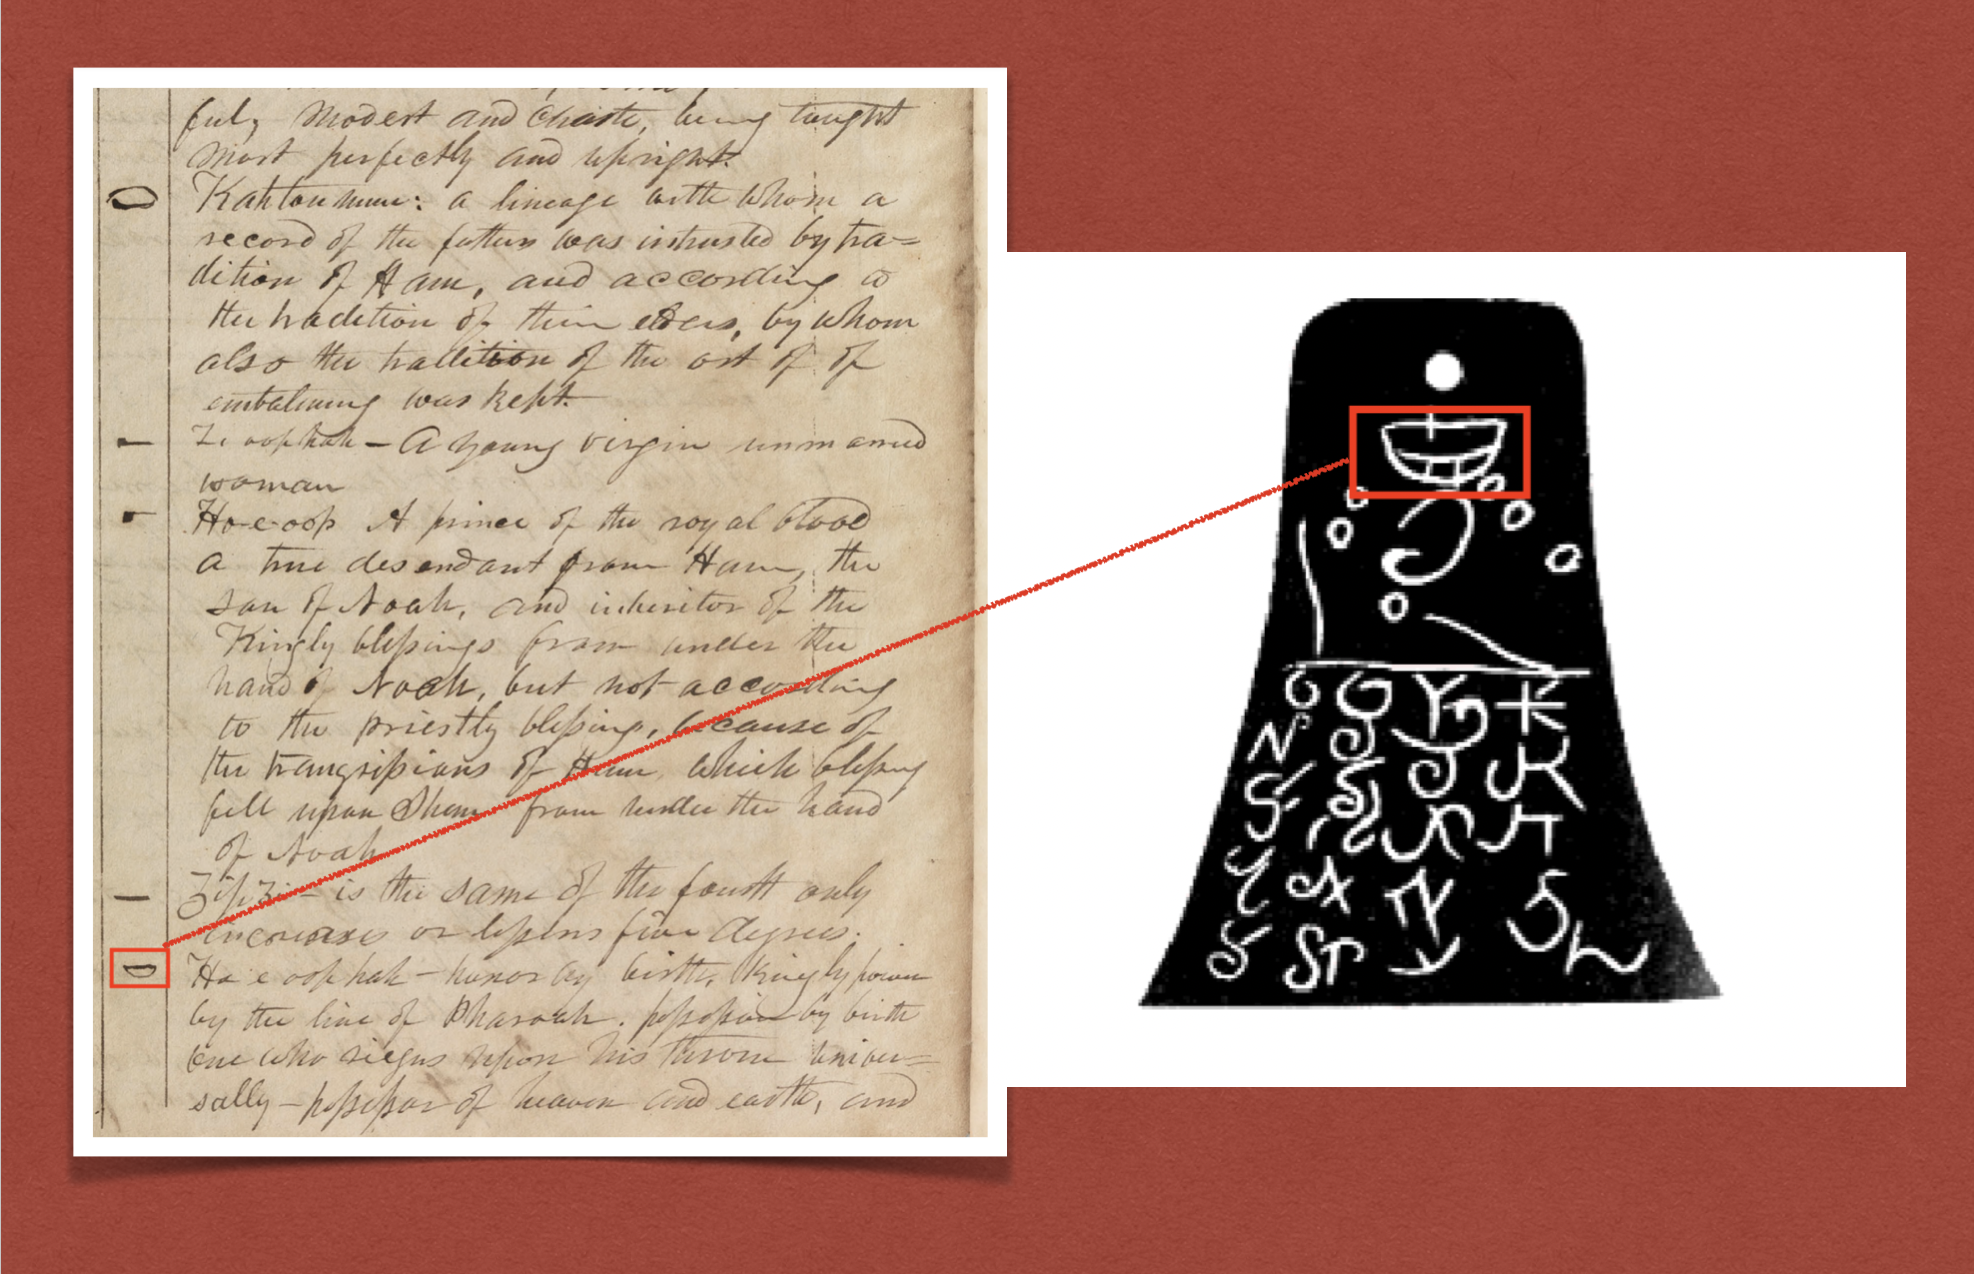 ful, modest and chaste, being taught
most perfectly and upright.
Kahtoumun: a lineage with whom a
record of the fathers was intrusted by tra=
dition of Ham, and according to
the tradition of their elders, by whom
also the tradition of the art of of
embalming was kept.
Zi oop hah – A young virgin unmarried
woman
Ho-e-oop A prince of the royal blood
a true desendant from Ham, the
son of Noah, and inheritor of the
Kingly blessings from under the
hand of Noah, but not according
to the priestly blessing, because of
the trangrissions of Ham, which blessing
fell upon Shem from under the hand
of Noah
Zip Zi – is the same of the fourth only
increases or lessens five degrees.
Ho e oop hah – honor by birth, Kingly power
by the line of Pharoah. possession by birth
one who riegns upon his throne univer=
sally – possessor of heaven and earth, and